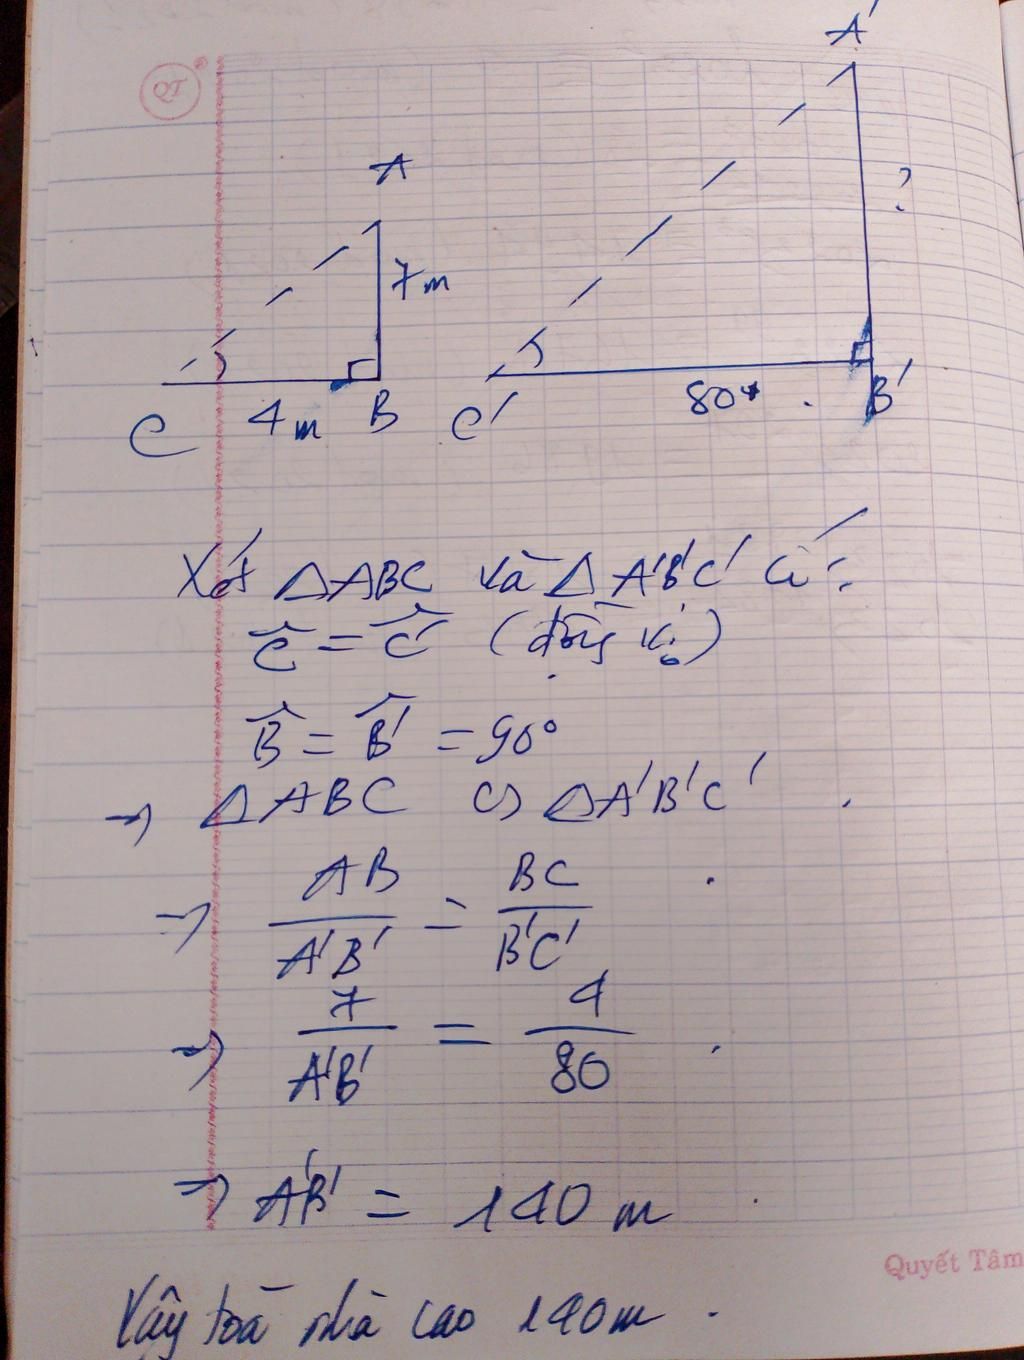 QT
A'
A
?
7m
80
C 4m B C' B'
Xét △ABC và △A'B'C' có:
Ĉ = Ĉ' (đồng vị)
B̂ = B̂' = 90°
→ △ABC ∽ △A'B'C'
→ AB/A'B' = BC/B'C'
→ 7/A'B' = 4/80
→ A'B' = 140 m
Quyết Tâm
Vậy toà nhà cao 140m.